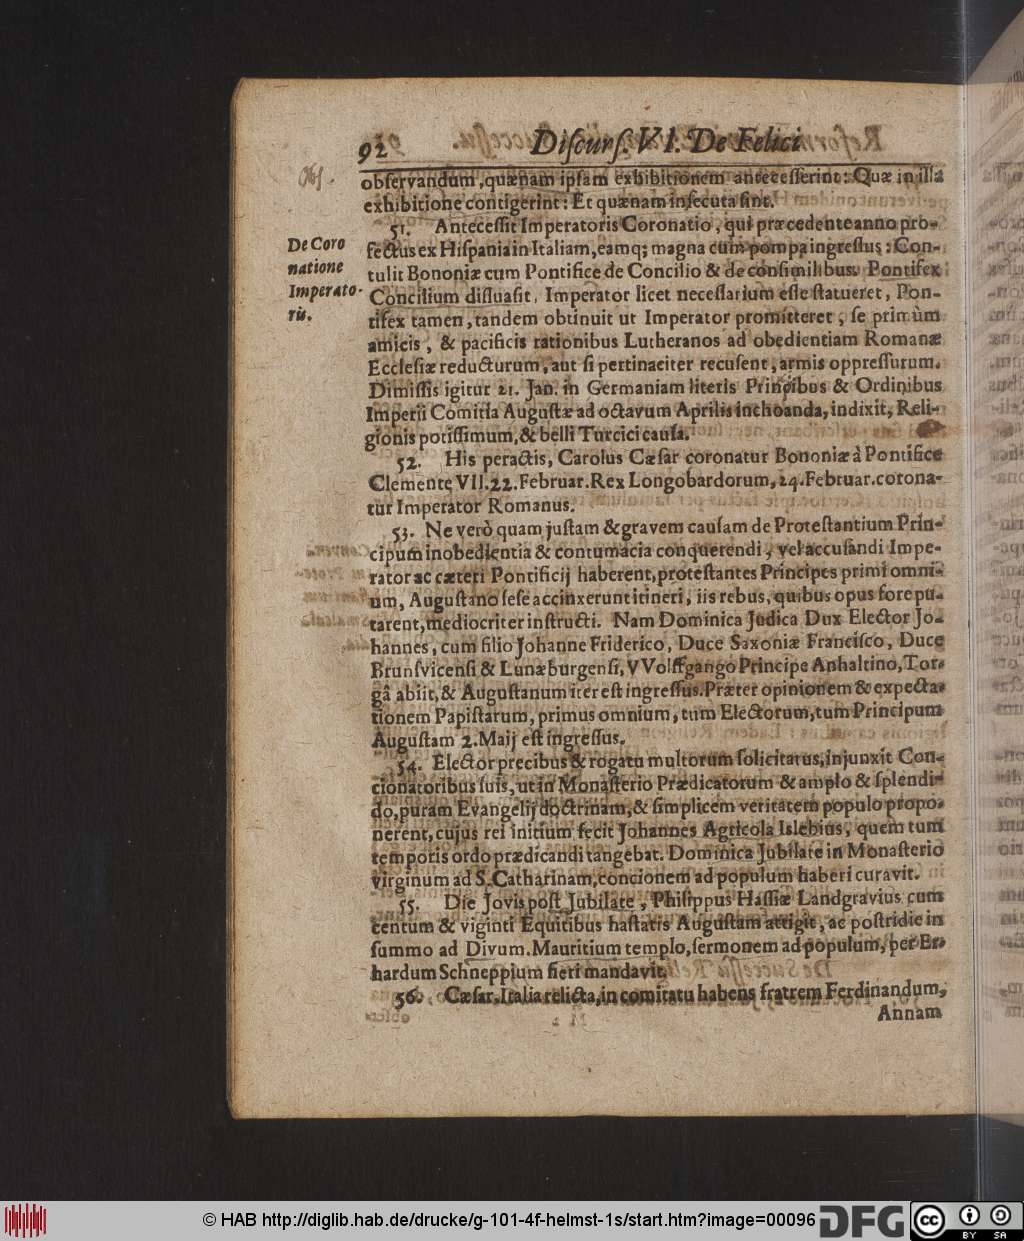 92 Diſcurſ. VI. De Felici
obſervandum, quænam ipſam exhibitionem anteceſſerint: Quæ in illa
exhibitione contigerint: Et quænam inſecuta ſint.
51. Anteceſſit Imperatoris Coronatio, qui præcedente anno pro-
De Coro
natione
Imperato-
ris.
fectus ex Hiſpania in Italiam, eamq; magna cum pompa ingreſſus: Con-
tulit Bononiæ cum Pontifice de Concilio & de conſimilibus. Pontifex
Concilium diſſuaſit, Imperator licet neceſſarium eſſe ſtatueret, Pon-
tifex tamen, tandem obtinuit ut Imperator promitteret, ſe primùm
amicis, & pacificis rationibus Lutheranos ad obedientiam Romanæ
Eccleſiæ reducturum, aut ſi pertinaciter recuſent, armis oppreſſurum.
Dimiſſis igitur 21. Jan. in Germaniam literis Principibus & Ordinibus
Imperii Comitia Auguſtæ ad octavum Aprilis inchoanda, indixit, Reli-
gionis potiſſimum, & belli Turcici cauſa.
52. His peractis, Carolus Cæſar coronatur Bononiæ à Pontifice
Clemente VII. 22. Februar. Rex Longobardorum, 24. Februar. corona-
tur Imperator Romanus.
53. Ne verò quam juſtam & gravem cauſam de Proteſtantium Prin-
cipum inobedientia & contumacia conquerendi, vel accuſandi Impe-
rator ac cæteri Pontificij haberent, proteſtantes Principes primi omni-
um, Auguſtano ſeſe accinxerunt itineri, iis rebus, quibus opus fore pu-
tarent, mediocriter inſtructi. Nam Dominica Judica Dux Elector Jo-
hannes, cum filio Johanne Friderico, Duce Saxoniæ Franciſco, Duce
Brunſvicenſi & Lunæburgenſi, VVolffgango Principe Anhaltino, Tor-
gâ abiit, & Auguſtanum iter eſt ingreſſus. Præter opinionem & expecta-
tionem Papiſtarum, primus omnium, tum Electorum, tum Principum
Auguſtam 2. Maij eſt ingreſſus.
54. Elector precibus & rogatu multorum ſolicitatus, injunxit Con-
cionatoribus ſuis, ut in Monaſterio Prædicatorum & amplo & ſplendi-
do, puram Evangelij doctrinam, & ſimplicem veritatem populo propo-
nerent, cujus rei initium fecit Johannes Agricola Islebius, quem tum
temporis ordo prædicandi tangebat. Dominica Jubilate in Monaſterio
virginum ad S. Catharinam, concionem ad populum haberi curavit.
55. Die Jovis poſt Jubilate, Philippus Haſſiæ Landgravius cum
centum & viginti Equitibus haſtatis Auguſtam attigit, ac poſtridie in
ſummo ad Divum. Mauritium templo, ſermonem ad populum, per Er-
hardum Schneppium fieri mandavit.
56. Cæſar, Italia relicta, in comitatu habens fratrem Ferdinandum,
Annam
© HAB http://diglib.hab.de/drucke/g-101-4f-helmst-1s/start.htm?image=00096 DFG cc BY SA